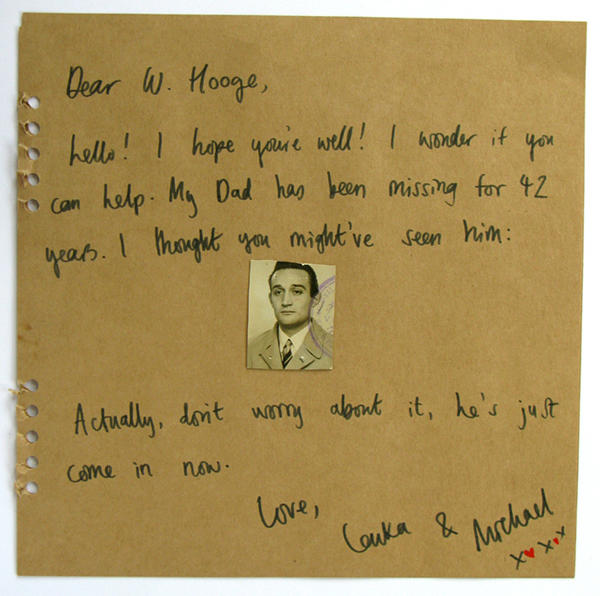 Dear W. Hooge,
hello! I hope you're well! I wonder if you
can help. My Dad has been missing for 42
years. I thought you might've seen him:
Actually, don't worry about it, he's just
come in now.
Love,
Lenka & Michael
x♥x♥x